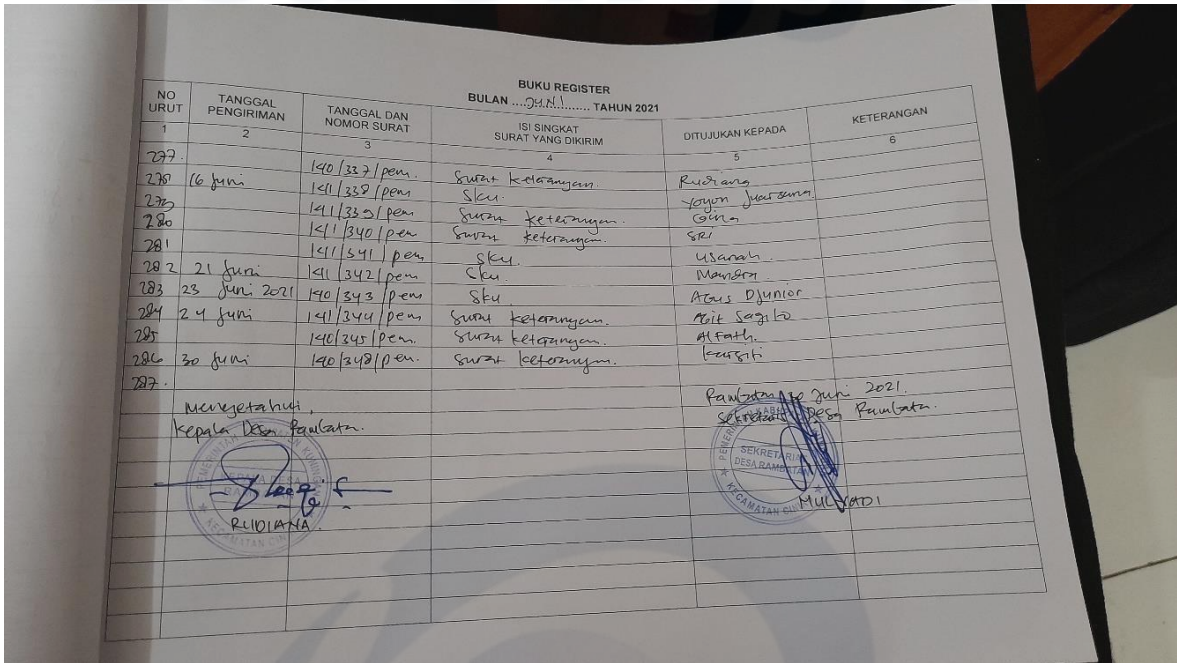 BUKU REGISTER
BULAN ....JUNI............ TAHUN 2021
NO URUT TANGGAL PENGIRIMAN TANGGAL DAN NOMOR SURAT ISI SINGKAT SURAT YANG DIKIRIM DITUJUKAN KEPADA KETERANGAN
1 2 3 4 5 6
277. 140/337/pem. Surat keterangan. Rudiana
278 16 Juni 141/338/pem Sku. Yoyon Juarsana
279 141/339/pem Surat keterangan. Gina
280 141/340/pem Surat keterangan. SRI
281 141/341/pem Sku. Usanah.
282 21 Juni 141/342/pem Sku. Mandra
283 23 Juni 2021 140/343/pem Sku Agus Djunior
284 24 Juni 141/344/pem Surat keterangan. Sagito
285 140/345/pem. Surat keterangan. Alfath.
286 30 Juni 140/348/pem. Surat keterangan. Karsiti
287.
Mengetahui,
Kepala Desa Rambatan.
RUDIANA
Rambatan, Juni 2021.
Sekretaris Desa Rambatan.
SEKRETARIS
DESA RAMBATAN
MULYADI